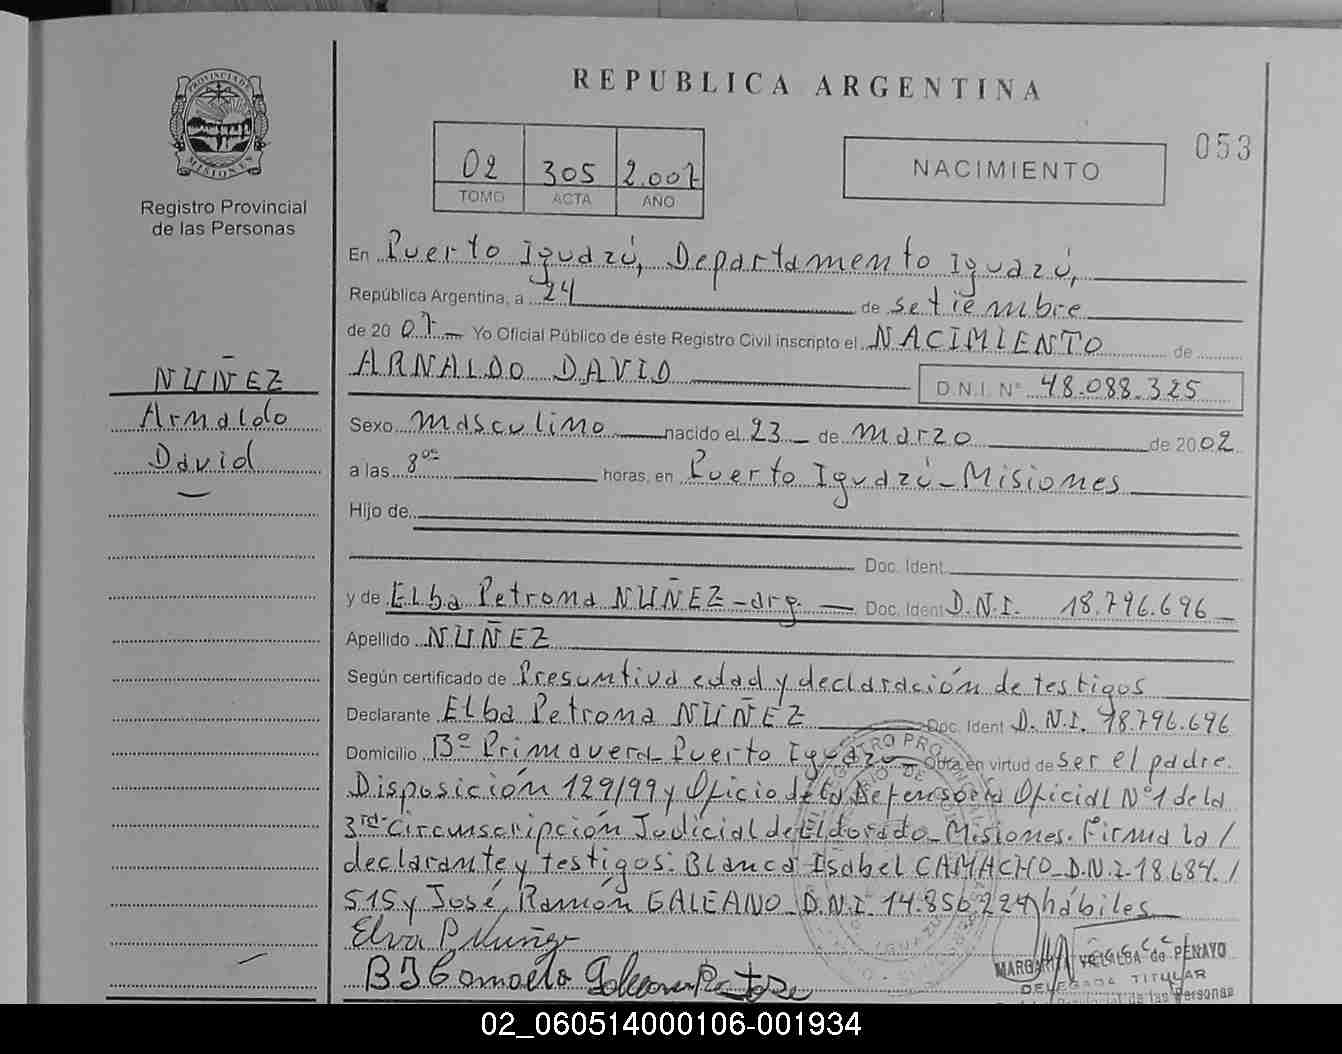 PROVINCIA DE
MISIONES
Registro Provincial
de las Personas
NUÑEZ
Arnaldo
David
REPUBLICA ARGENTINA
053
02 305 2.007
TOMO ACTA AÑO
NACIMIENTO
En Puerto Iguazú, Departamento Iguazú,
República Argentina, a 24 de setiembre
de 20 07 Yo Oficial Público de éste Registro Civil inscripto el NACIMIENTO de
ARNALDO DAVID D.N.I. N° 48.088.325
Sexo masculino nacido el 23 de marzo de 2002
a las 8°° horas, en Puerto Iguazú - Misiones
Hijo de
Doc. Ident.
y de Elba Petrona NUÑEZ - arg. Doc. Ident D.N.I. 18.796.696
Apellido NUÑEZ
Según certificado de Presuntiva edad y declaración de testigos
Declarante Elba Petrona NUÑEZ Doc. Ident D.N.I. 18.796.696
Domicilio B° Primavera - Puerto Iguazú Obra en virtud de ser el padre.
Disposición 129/99 y Oficio de la Defensoría Oficial N°1 de la
3rd. Circunscripción Judicial de Eldorado - Misiones. Firma la /
declarante y testigos: Blanca Isabel CAMACHO - D.N.I. 18.684. /
515 y José Ramón GALEANO - D.N.I. 14.856.224 hábiles
Elva P Nuñez
B I Camacho Galeano Ramon Jose
MARGARITA VILLALBA de PENAYO
DELEGADA TITULAR
Provincial de las Personas
02_060514000106-001934